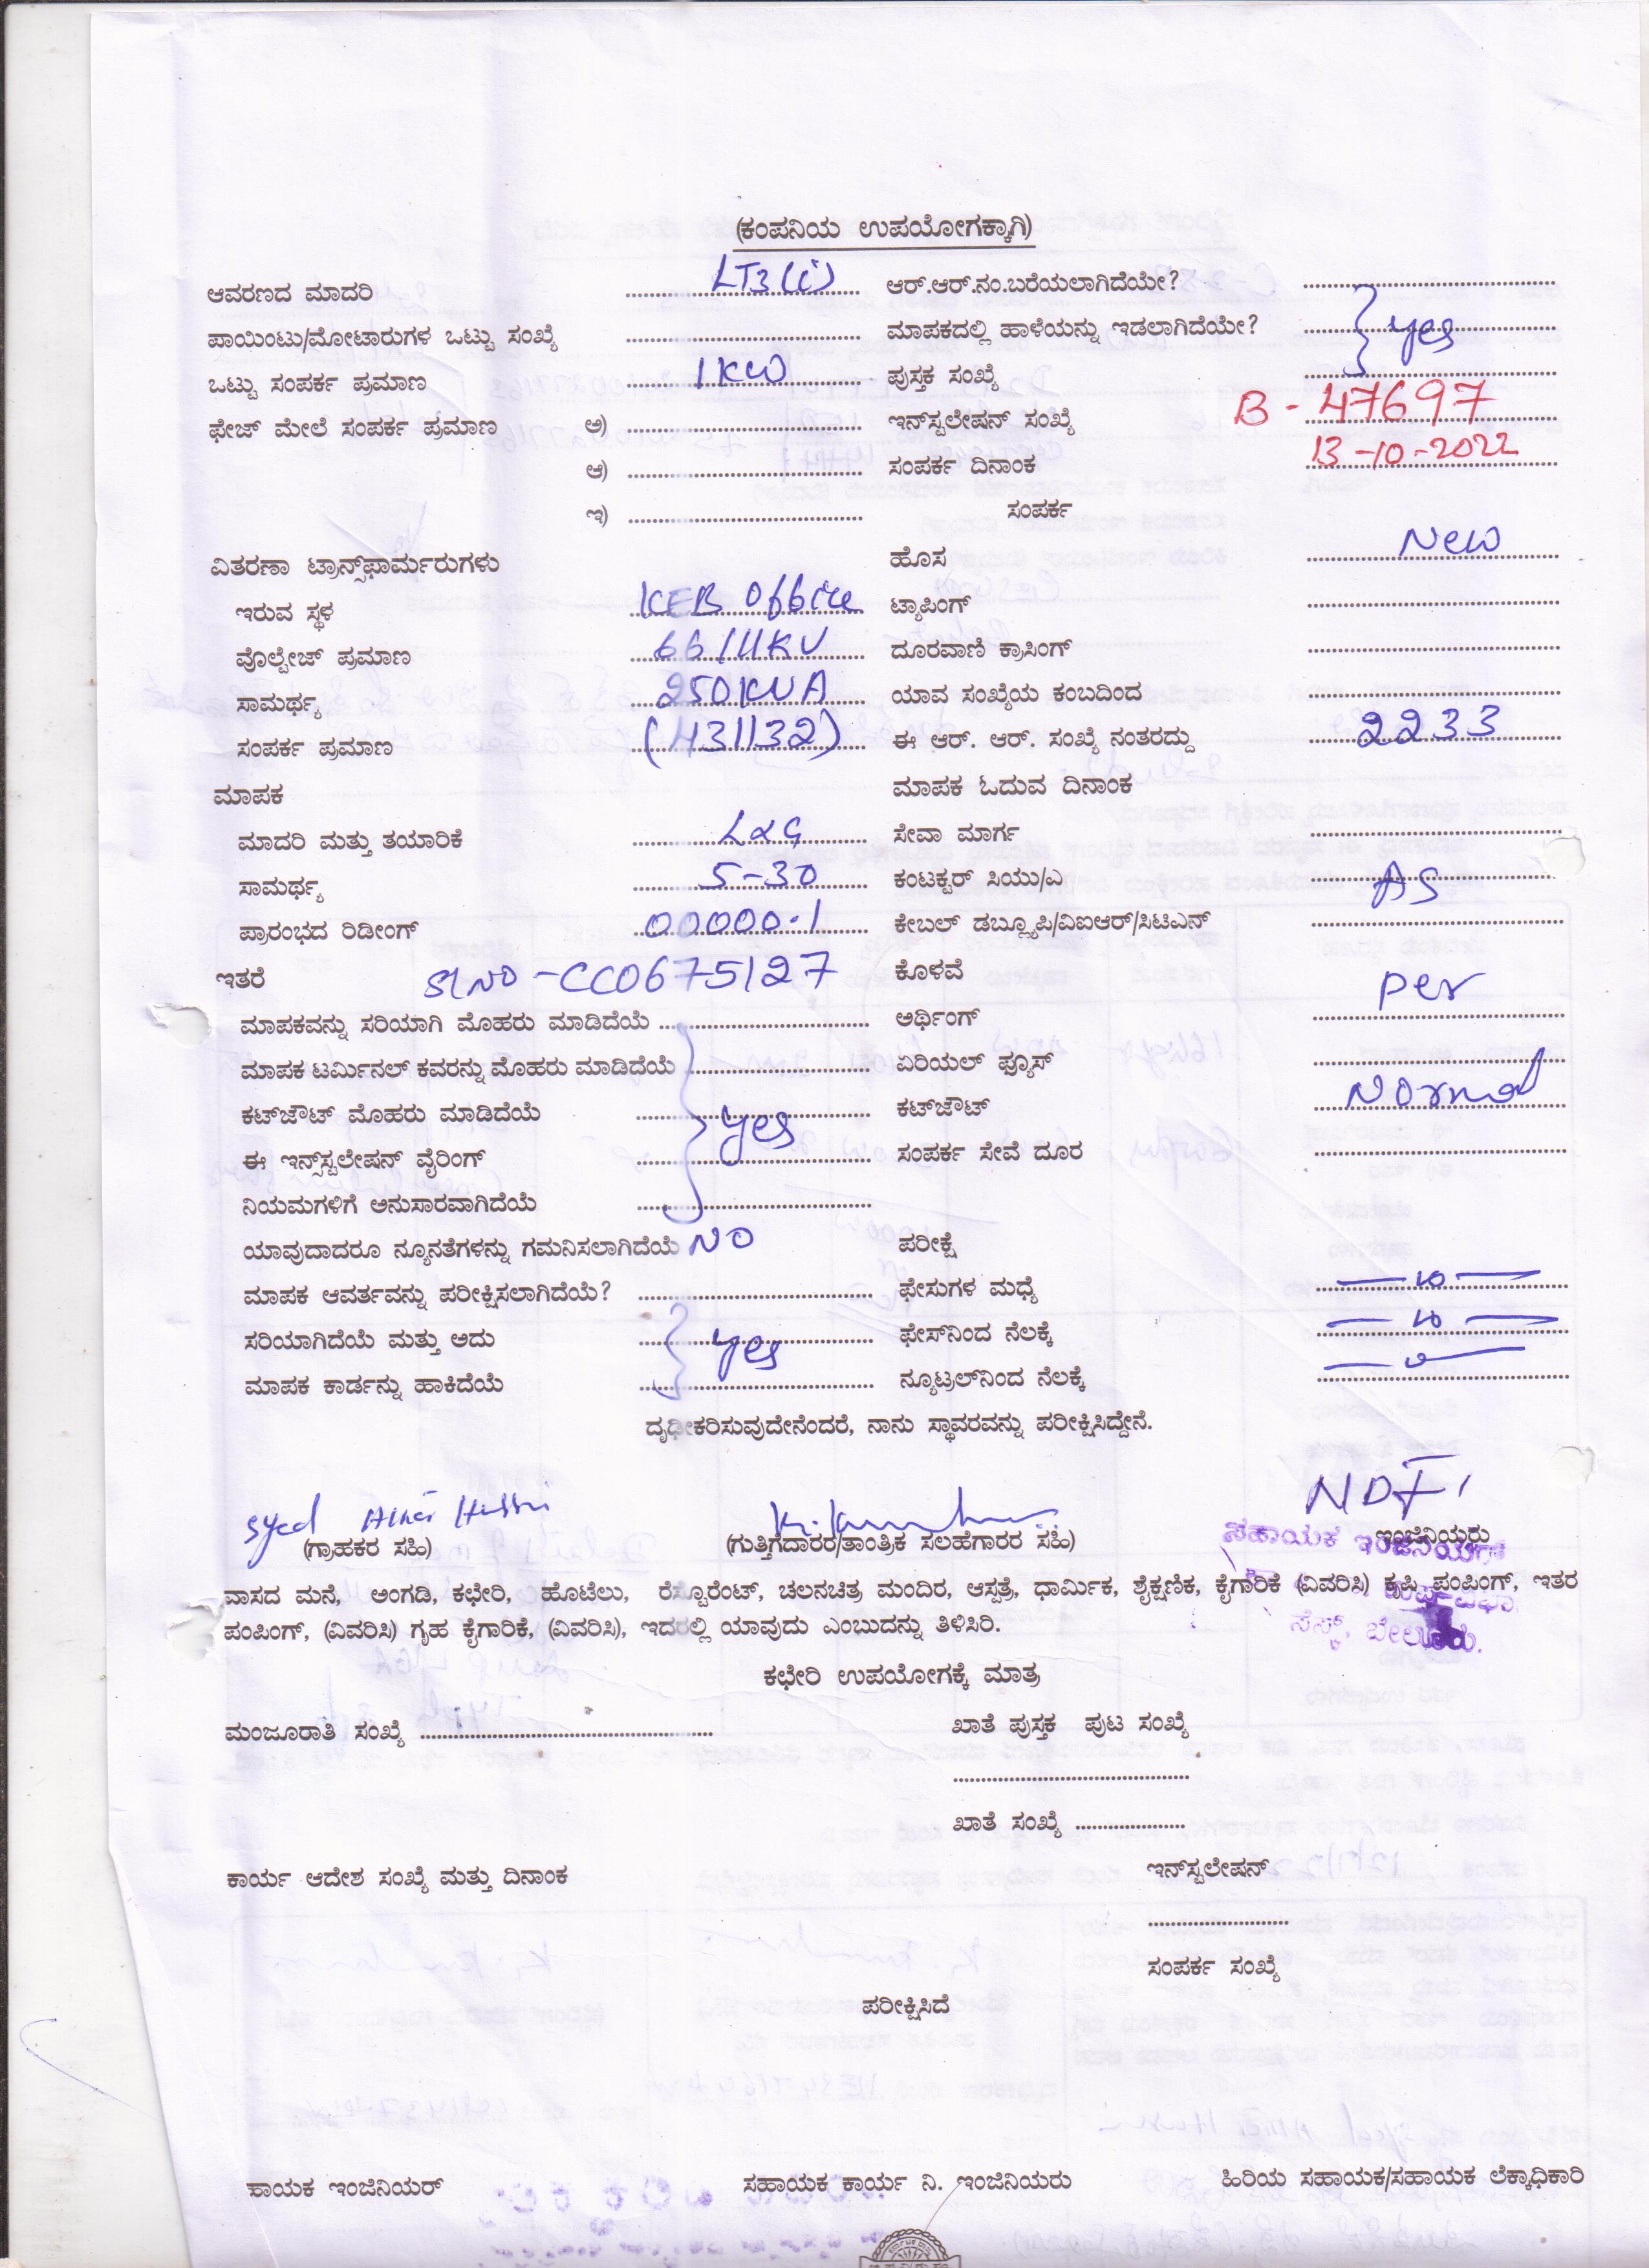 (ಕಂಪನಿಯ ಉಪಯೋಗಕ್ಕಾಗಿ)
ಆವರಣದ ಮಾದರಿ LT3(i) ಆರ್.ಆರ್.ನಂ.ಬರೆಯಲಾಗಿದೆಯೇ?
ಪಾಯಿಂಟು/ಮೋಟಾರುಗಳ ಒಟ್ಟು ಸಂಖ್ಯೆ ಮಾಪಕದಲ್ಲಿ ಹಾಳೆಯನ್ನು ಇಡಲಾಗಿದೆಯೇ? yes
ಒಟ್ಟು ಸಂಪರ್ಕ ಪ್ರಮಾಣ 1KW ಪುಸ್ತಕ ಸಂಖ್ಯೆ
ಫೇಜ್ ಮೇಲೆ ಸಂಪರ್ಕ ಪ್ರಮಾಣ ಅ) ಇನ್‌ಸ್ಟಲೇಷನ್ ಸಂಖ್ಯೆ B - 47697
ಆ) ಸಂಪರ್ಕ ದಿನಾಂಕ 13-10-2022
ಇ) ಸಂಪರ್ಕ
ವಿತರಣಾ ಟ್ರಾನ್ಸ್‌ಫಾರ್ಮರುಗಳು ಹೊಸ New
ಇರುವ ಸ್ಥಳ KEB Office ಟ್ಯಾಪಿಂಗ್
ವೊಲ್ಟೇಜ್ ಪ್ರಮಾಣ 66/11KV ದೂರವಾಣಿ ಕ್ರಾಸಿಂಗ್
ಸಾಮರ್ಥ್ಯ 250KVA ಯಾವ ಸಂಖ್ಯೆಯ ಕಂಬದಿಂದ
ಸಂಪರ್ಕ ಪ್ರಮಾಣ (431132) ಈ ಆರ್. ಆರ್. ಸಂಖ್ಯೆ ನಂತರದ್ದು 2233
ಮಾಪಕ ಮಾಪಕ ಓದುವ ದಿನಾಂಕ
ಮಾದರಿ ಮತ್ತು ತಯಾರಿಕೆ L&G ಸೇವಾ ಮಾರ್ಗ
ಸಾಮರ್ಥ್ಯ 5-30 ಕಂಟಕ್ಟರ್ ಸಿಯು/ಎ AS
ಪ್ರಾರಂಭದ ರಿಡೀಂಗ್ 00000.1 ಕೇಬಲ್ ಡಬ್ಲ್ಯೂಪಿ/ವಿಐಆರ್/ಸಿಟಿಎನ್
ಇತರೆ Sl NO - CC0675127 ಕೊಳವೆ per
ಮಾಪಕವನ್ನು ಸರಿಯಾಗಿ ಮೊಹರು ಮಾಡಿದೆಯೆ ಅರ್ಥಿಂಗ್
ಮಾಪಕ ಟರ್ಮಿನಲ್ ಕವರನ್ನು ಮೊಹರು ಮಾಡಿದೆಯೆ ಏರಿಯಲ್ ಫ್ಯೂಸ್
ಕಟ್‌ಔಟ್ ಮೊಹರು ಮಾಡಿದೆಯೆ yes ಕಟ್‌ಔಟ್ Normal
ಈ ಇನ್ಸ್‌ಸ್ಟಲೇಷನ್ ವೈರಿಂಗ್ ಸಂಪರ್ಕ ಸೇವೆ ದೂರ
ನಿಯಮಗಳಿಗೆ ಅನುಸಾರವಾಗಿದೆಯೆ
ಯಾವುದಾದರೂ ನ್ಯೂನತೆಗಳನ್ನು ಗಮನಿಸಲಾಗಿದೆಯೆ NO ಪರೀಕ್ಷೆ
ಮಾಪಕ ಆವರ್ತವನ್ನು ಪರೀಕ್ಷಿಸಲಾಗಿದೆಯೆ? ಫೇಸುಗಳ ಮಧ್ಯೆ
ಸರಿಯಾಗಿದೆಯೆ ಮತ್ತು ಅದು yes ಫೇಸ್‌ನಿಂದ ನೆಲಕ್ಕೆ
ಮಾಪಕ ಕಾರ್ಡನ್ನು ಹಾಕಿದೆಯೆ ನ್ಯೂಟ್ರಲ್‌ನಿಂದ ನೆಲಕ್ಕೆ
ದೃಢೀಕರಿಸುವುದೇನೆಂದರೆ, ನಾನು ಸ್ಥಾವರವನ್ನು ಪರೀಕ್ಷಿಸಿದ್ದೇನೆ.
Syed
(ಗ್ರಾಹಕರ ಸಹಿ) (ಗುತ್ತಿಗೆದಾರರ/ತಾಂತ್ರಿಕ ಸಲಹೆಗಾರರ ಸಹಿ) ಇಂಜಿನಿಯರು
ಸಹಾಯಕ ಇಂಜಿನಿಯರ್
ವಾಸದ ಮನೆ, ಅಂಗಡಿ, ಕಛೇರಿ, ಹೊಟೆಲು, ರೆಸ್ಟೊರೆಂಟ್, ಚಲನಚಿತ್ರ ಮಂದಿರ, ಆಸ್ಪತ್ರೆ, ಧಾರ್ಮಿಕ, ಶೈಕ್ಷಣಿಕ, ಕೈಗಾರಿಕೆ (ವಿವರಿಸಿ) ಕೃಷಿ ಪಂಪಿಂಗ್, ಇತರ
ಪಂಪಿಂಗ್, (ವಿವರಿಸಿ) ಗೃಹ ಕೈಗಾರಿಕೆ, (ವಿವರಿಸಿ), ಇದರಲ್ಲಿ ಯಾವುದು ಎಂಬುದನ್ನು ತಿಳಿಸಿರಿ.
ಸೆಸ್ಕ್, ಬೇಲೂರು.
ಕಛೇರಿ ಉಪಯೋಗಕ್ಕೆ ಮಾತ್ರ
ಮಂಜೂರಾತಿ ಸಂಖ್ಯೆ ಖಾತೆ ಪುಸ್ತಕ ಪುಟ ಸಂಖ್ಯೆ
ಖಾತೆ ಸಂಖ್ಯೆ
ಕಾರ್ಯ ಆದೇಶ ಸಂಖ್ಯೆ ಮತ್ತು ದಿನಾಂಕ ಇನ್‌ಸ್ಟಲೇಷನ್
ಸಂಪರ್ಕ ಸಂಖ್ಯೆ
ಪರೀಕ್ಷಿಸಿದೆ
ಹಾಯಕ ಇಂಜಿನಿಯರ್ ಸಹಾಯಕ ಕಾರ್ಯ ನಿ. ಇಂಜಿನಿಯರು ಹಿರಿಯ ಸಹಾಯಕ/ಸಹಾಯಕ ಲೆಕ್ಕಾಧಿಕಾರಿ